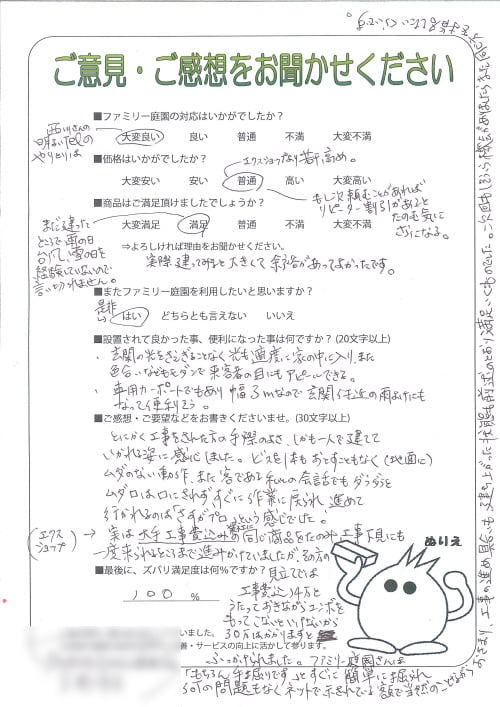 ご意見・ご感想をお聞かせください
■ファミリー庭園の対応はいかがでしたか?
西川さんの
明るいTELの
やりとりは
大変良い 良い 普通 不満 大変不満
■価格はいかがでしたか?
エクスショップより 若干高め。
大変安い 安い 普通 高い 大変高い
■商品はご満足頂けましたでしょうか?
もし次頼むことがあれば
リピーター割引があると
たのも気に
なる。
大変満足 満足 普通 不満 大変不満
まだ建った
ところで雨の日
台風、雪の日を
経験していないので
言い切れません。
⇒よろしければ理由をお聞かせください。
実際建ってみると大きくて余裕があってよかったです。
■またファミリー庭園を利用したいと思いますか?
是非
はい どちらとも言えない いいえ
■設置されて良かった事、便利になった事は何ですか?(20文字以上)
・玄関の光をさえぎることなく光も適度に家の中に入り、また
色合いなどもモダンで来客者の目にもアピールできる。
・車用カーポートでもあり幅3mなので玄関付近の雨よけにも
なって便利そう。
■ご感想・ご要望などをお書きくださいませ。(30文字以上)
とにかく工事をされた方の手際のよさ、しかも一人で建てて
いかれる姿に感心しました。ビスを1本もおとすこともなく(地面に)
ムダのない動作、また客である私との会話でもダラダラと
ムダ口は口にされずすぐに作業に戻られ進めて
行かれるのは「さすがプロ」という感じでした。
(エクスショップ)→実は大手工事費込みの同じ商品をたのみ工事下見にも
一度来られるところまで進みかけていましたが、その方の
見立てでは
■最後に、ズバリ満足度は何%ですか?
100 %
工事費込14万と
うたっておきながらユンボを
もってこないといけないから
30万はかかりますと
ふっかけられました。ファミリー庭園さんは
「もちろん手掘りです」とすぐに簡単に掘られ
何の問題もなくネットで示されている額で当然のことながら
ぬりえ
いました。
善・サービスの向上に活かして参ります。